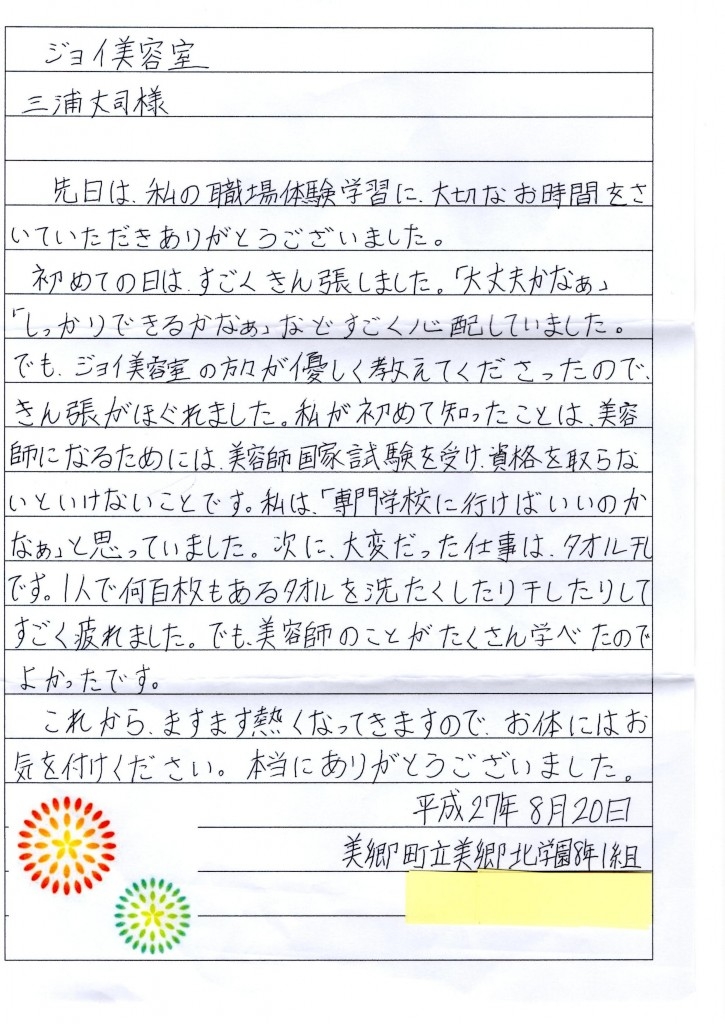 ジョイ美容室
三浦丈司様
先日は、私の職場体験学習に、大切なお時間をさ
いていただきありがとうございました。
初めての日は、すごくきん張しました。「大丈夫かなぁ」
「しっかりできるかなぁ」などすごく心配していました。
でも、ジョイ美容室の方々が優しく教えてくださったので、
きん張がほぐれました。私が初めて知ったことは、美容
師になるためには、美容師国家試験を受け、資格を取らな
いといけないことです。私は、「専門学校に行けばいいのか
なぁ」と思っていました。次に、大変だった仕事は、タオル干し
です。1人で何百枚もあるタオルを洗たくしたり干したりして
すごく疲れました。でも、美容師のことがたくさん学べたので
よかったです。
これから、ますます熱くなってきますので、お体にはお
気を付けください。本当にありがとうございました。
平成27年8月20日
美郷町立美郷北学園8年1組